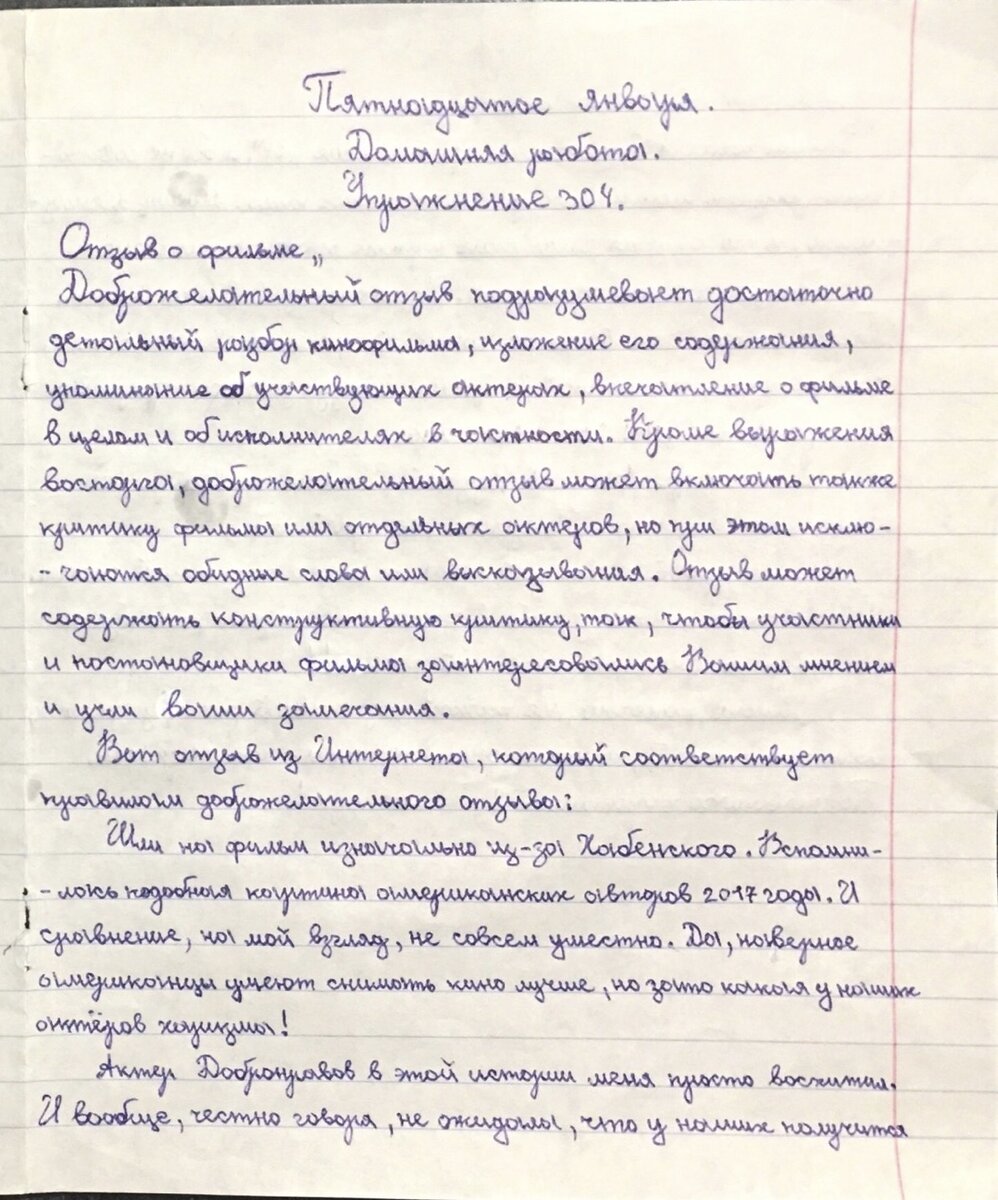 Пятнадцатое января.
Домашняя работа.
Упражнение 304.
Отзыв о фильме „
Доброжелательный отзыв подразумевает достаточно
детальный разбор кинофильма, изложение его содержания,
упоминание об участвующих актерах, впечатление о фильме
в целом и об исполнителях в частности. Кроме выражения
восторга, доброжелательный отзыв может включать также
критику фильма или отдельных актеров, но при этом исклю-
- чаются обидные слова или высказывания. Отзыв может
содержать конструктивную критику, так, чтобы участники
и постановщики фильма заинтересовались Вашим мнением
и учли ваши замечания.
Вот отзыв из Интернета, который соответствует
правилам доброжелательного отзыва:
Шли на фильм изначально из-за Хабенского. Вспомни-
- лась подобная картина американских авторов 2017 годы. И
сравнение, на мой взгляд, не совсем уместно. Да, наверное
американцы умеют снимать кино лучше, но зато какая у наших
актёров харизма!
Актер Добронравов в этой истории меня просто восхитил.
И вообще, честно говоря, не ожидала, что у наших получится